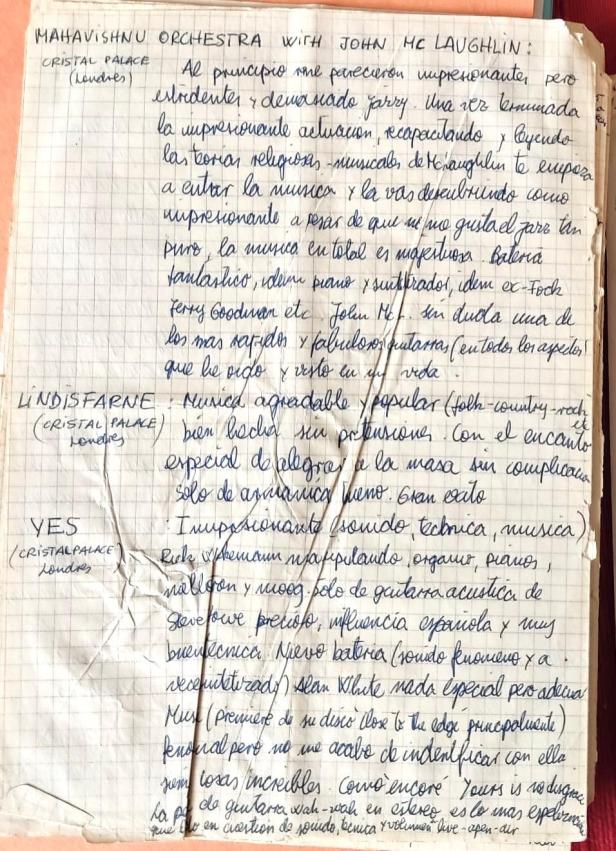 MAHAVISHNU ORCHESTRA WITH JOHN MC LAUGHLIN:
CRISTAL PALACE
(Londres)
Al principio me parecieron impresionantes pero
estridentes y demasiado jazzy. Una vez terminada
la impresionante actuacion, recapacitando y leyendo
las teorias religiosas-musicales de McLaughlin te empieza
a entrar la musica y la vas descubriendo como
impresionante a pesar de que no me gusta el jazz tan
puro, la musica en total es majestuosa. Bateria
fantastico, idem piano y sintetizador, idem ex-Flock
Jerry Goodman etc. John Mc. sin duda una de
los mas rapidos y fabulosos guitarras (en todos los aspectos)
que he oido y visto en mi vida.
LINDISFARNE : Musica agradable y popular (folk-country-rock
(CRISTAL PALACE)
Londres
bien hecha sin pretensiones. Con el encanto
especial de alegrar a la masa sin complicacion
Solo de armonica bueno. Gran exito
YES : Impresionante (sonido, tecnica, musica)
(CRISTAL PALACE)
Londres
Rick Wakemann manipulando, organo, pianos,
mellotron y moog. Solo de guitarra acustica de
Steve Howe precioso, influencia española y muy
buena tecnica. Nuevo bateria (sonido fenomeno y a
veces sintetizado) Alan White nada especial pero adecuado
Musi (premiere de su disco Close to the edge principalmente)
fenomenal pero no me acabo de indentificar con ella
cosas increibles. Como encoré Yours is no disgrace
de guitarra wah-wah en estereo es lo mas espeluznante
que en cuestion de sonido, tecnica y volumen live-open-air